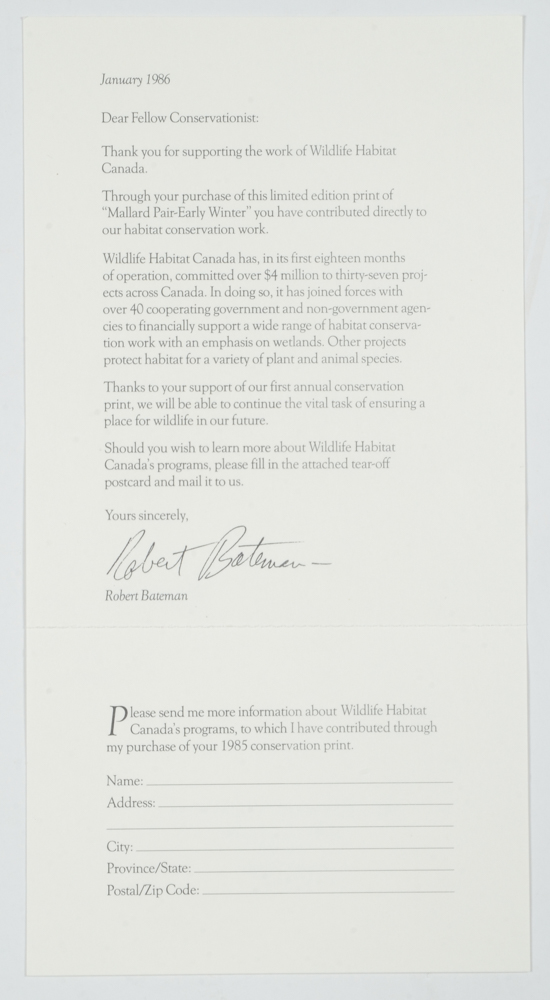 January 1986
Dear Fellow Conservationist:
Thank you for supporting the work of Wildlife Habitat
Canada.
Through your purchase of this limited edition print of
"Mallard Pair-Early Winter" you have contributed directly to
our habitat conservation work.
Wildlife Habitat Canada has, in its first eighteen months
of operation, committed over $4 million to thirty-seven proj-
ects across Canada. In doing so, it has joined forces with
over 40 cooperating government and non-government agen-
cies to financially support a wide range of habitat conserva-
tion work with an emphasis on wetlands. Other projects
protect habitat for a variety of plant and animal species.
Thanks to your support of our first annual conservation
print, we will be able to continue the vital task of ensuring a
place for wildlife in our future.
Should you wish to learn more about Wildlife Habitat
Canada's programs, please fill in the attached tear-off
postcard and mail it to us.
Yours sincerely,
Robert Bateman
Robert Bateman
Please send me more information about Wildlife Habitat
Canada's programs, to which I have contributed through
my purchase of your 1985 conservation print.
Name:
Address:
City:
Province/State:
Postal/Zip Code: